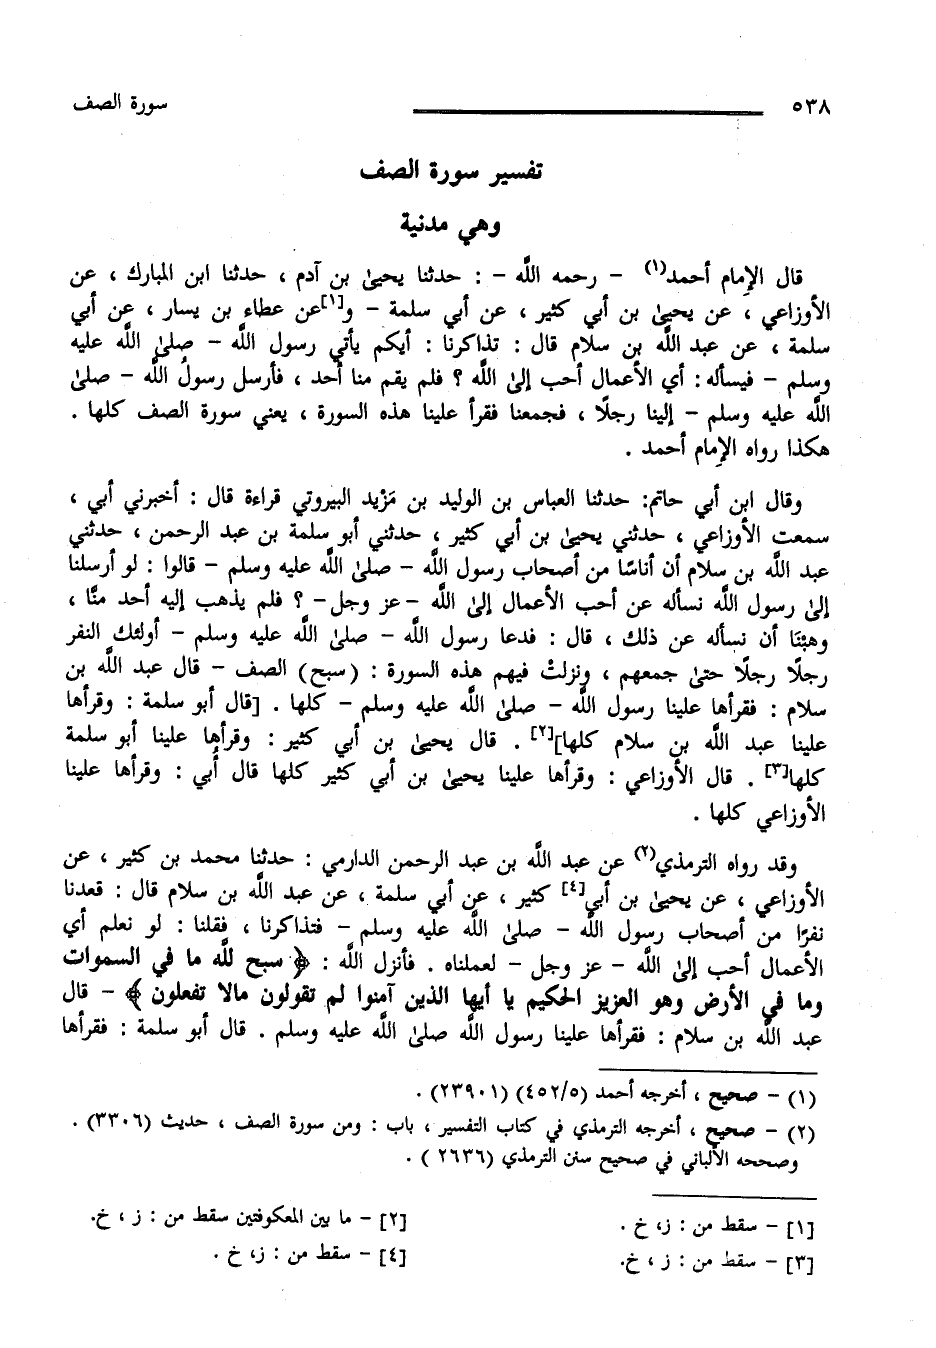 ٥٣٨ سورة الصف
تفسير سورة الصف
وهي مدنية
قال الإمام أحمد(١) - رحمه اللَّه - : حدثنا يحيىٰ بن آدم ، حدثنا ابن المبارك ، عن
الأوزاعي ، عن يحيىٰ بن أبي كثير ، عن أبي سلمة - و[١]عن عطاء بن يسار ، عن أبي
سلمة ، عن عبد اللَّه بن سلام قال : تذاكرنا : أيكم يأتي رسول اللَّه - صلىٰ اللَّه عليه
وسلم - فيسأله : أي الأعمال أحب إلىٰ اللَّه ؟ فلم يقم منا أحد ، فأرسل رسولُ اللَّه - صلىٰ
اللَّه عليه وسلم - إلينا رجلًا ، فجمعنا فقرأ علينا هذه السورة ، يعني سورة الصف كلها .
هكذا رواه الإمام أحمد .
وقال ابن أبي حاتم: حدثنا العباس بن الوليد بن مَزْيد البيروتي قراءة قال : أخبرني أبي ،
سمعت الأوزاعي ، حدثني يحيىٰ بن أبي كثير ، حدثني أبو سلمة بن عبد الرحمن ، حدثني
عبد اللَّه بن سلام أن أناسًا من أصحاب رسول اللَّه - صلىٰ اللَّه عليه وسلم - قالوا : لو أرسلنا
إلىٰ رسول اللَّه نسأله عن أحب الأعمال إلىٰ اللَّه -عز وجل- ؟ فلم يذهب إليه أحد منَّا ،
وهبْنَا أن نسأله عن ذلك ، قال : فدعا رسول اللَّه - صلىٰ اللَّه عليه وسلم - أولئك النفر
رجلًا رجلًا حتىٰ جمعهم ، ونزلتْ فيهم هذه السورة : (سبح) الصف - قال عبد اللَّه بن
سلام : فقرأها علينا رسول اللَّه - صلىٰ اللَّه عليه وسلم - كلها . [قال أبو سلمة : وقرأها
علينا عبد اللَّه بن سلام كلها][٢] . قال يحيىٰ بن أبي كثير : وقرأها علينا أبو سلمة
كلها[٣] . قال الأوزاعي : وقرأها علينا يحيىٰ بن أبي كثير كلها قال أُبي : وقرأها علينا
الأوزاعي كلها .
وقد رواه الترمذي(٢) عن عبد اللَّه بن عبد الرحمن الدارمي : حدثنا محمد بن كثير ، عن
الأوزاعي ، عن يحيىٰ بن أبي[٤] كثير ، عن أبي سلمة ، عن عبد اللَّه بن سلام قال : قعدنا
نفرًا من أصحاب رسول اللَّه - صلىٰ اللَّه عليه وسلم - فتذاكرنا ، فقلنا : لو نعلم أي
الأعمال أحب إلىٰ اللَّه - عز وجل - لعملناه . فأنزل اللَّه : ﴿ سبح للَّه ما في السموات
وما في الأرض وهو العزيز الحكيم يا أيها الذين آمنوا لم تقولون مالا تفعلون ﴾ - قال
عبد اللَّه بن سلام : فقرأها علينا رسول اللَّه صلىٰ اللَّه عليه وسلم . قال أبو سلمة : فقرأها
(١) - صحيح ، أخرجه أحمد (٤٥٢/٥) (٢٣٩٠١) .
(٢) - صحيح ، أخرجه الترمذي في كتاب التفسير ، باب : ومن سورة الصف ، حديث (٣٣٠٦) .
وصححه الألباني في صحيح سنن الترمذي (٢٦٣٦ ) .
[١] - سقط من : ز، خ . [٢] - ما بين المعكوفتين سقط من : ز ، خ.
[٣] - سقط من : ز ، خ. [٤] - سقط من : ز، خ .